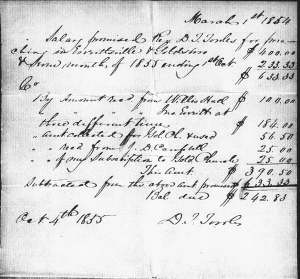 March, 1st 1854
Salary promised Rev D. T. Towles for prea-
ching in Everittsville & Goldsboro $400.00
& some months of 1855 ending 1st Oct 233.33
$ 633.33
Cr
By Amount recd from Willis Hall $ 100.00
" " " Jno Everitt at
three different times $ 184.00
" amt collected for Gd. Ch. & used 56.50
" " recd from J. D. Campbell 25.00
" " of my Subscription to Gold Church 25.00
This Amt $ 390.50
Subtracted from the above amt promised $ 633.33
Bal due $ 242.83
Oct 4th 1855 D. T. Towles